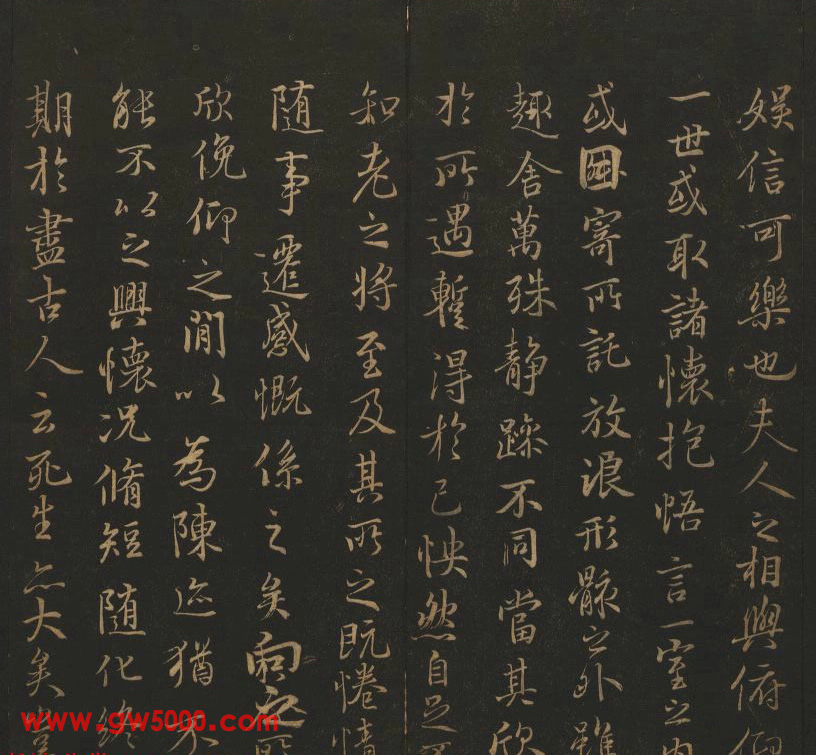 娱信可樂也夫人之相與俯仰
一世或取諸懷抱悟言一室之内
或因寄所託放浪形骸之外雖
趣舍萬殊静躁不同當其欣
於所遇蹔得於己怏然自足不
知老之將至及其所之既惓情
随事遷感慨係之矣向之所
欣俛仰之閒以為陳迹猶不
能不以之興懷况脩短随化終
期於盡古人云死生亦大矣豈
www.gw5000.com